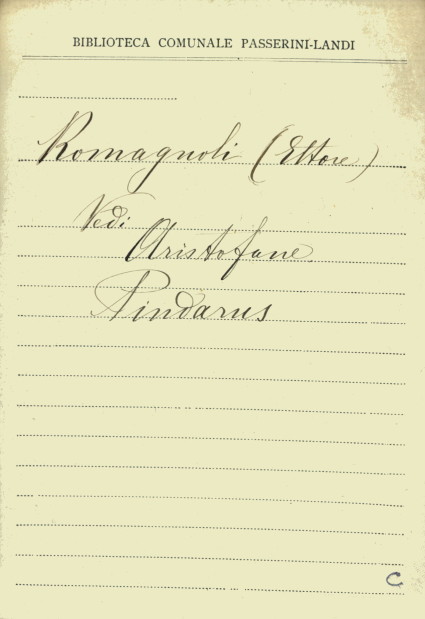 BIBLIOTECA COMUNALE PASSERINI-LANDI
Romagnoli (Ettore)
Vedi
Aristofane
Pindarus
C